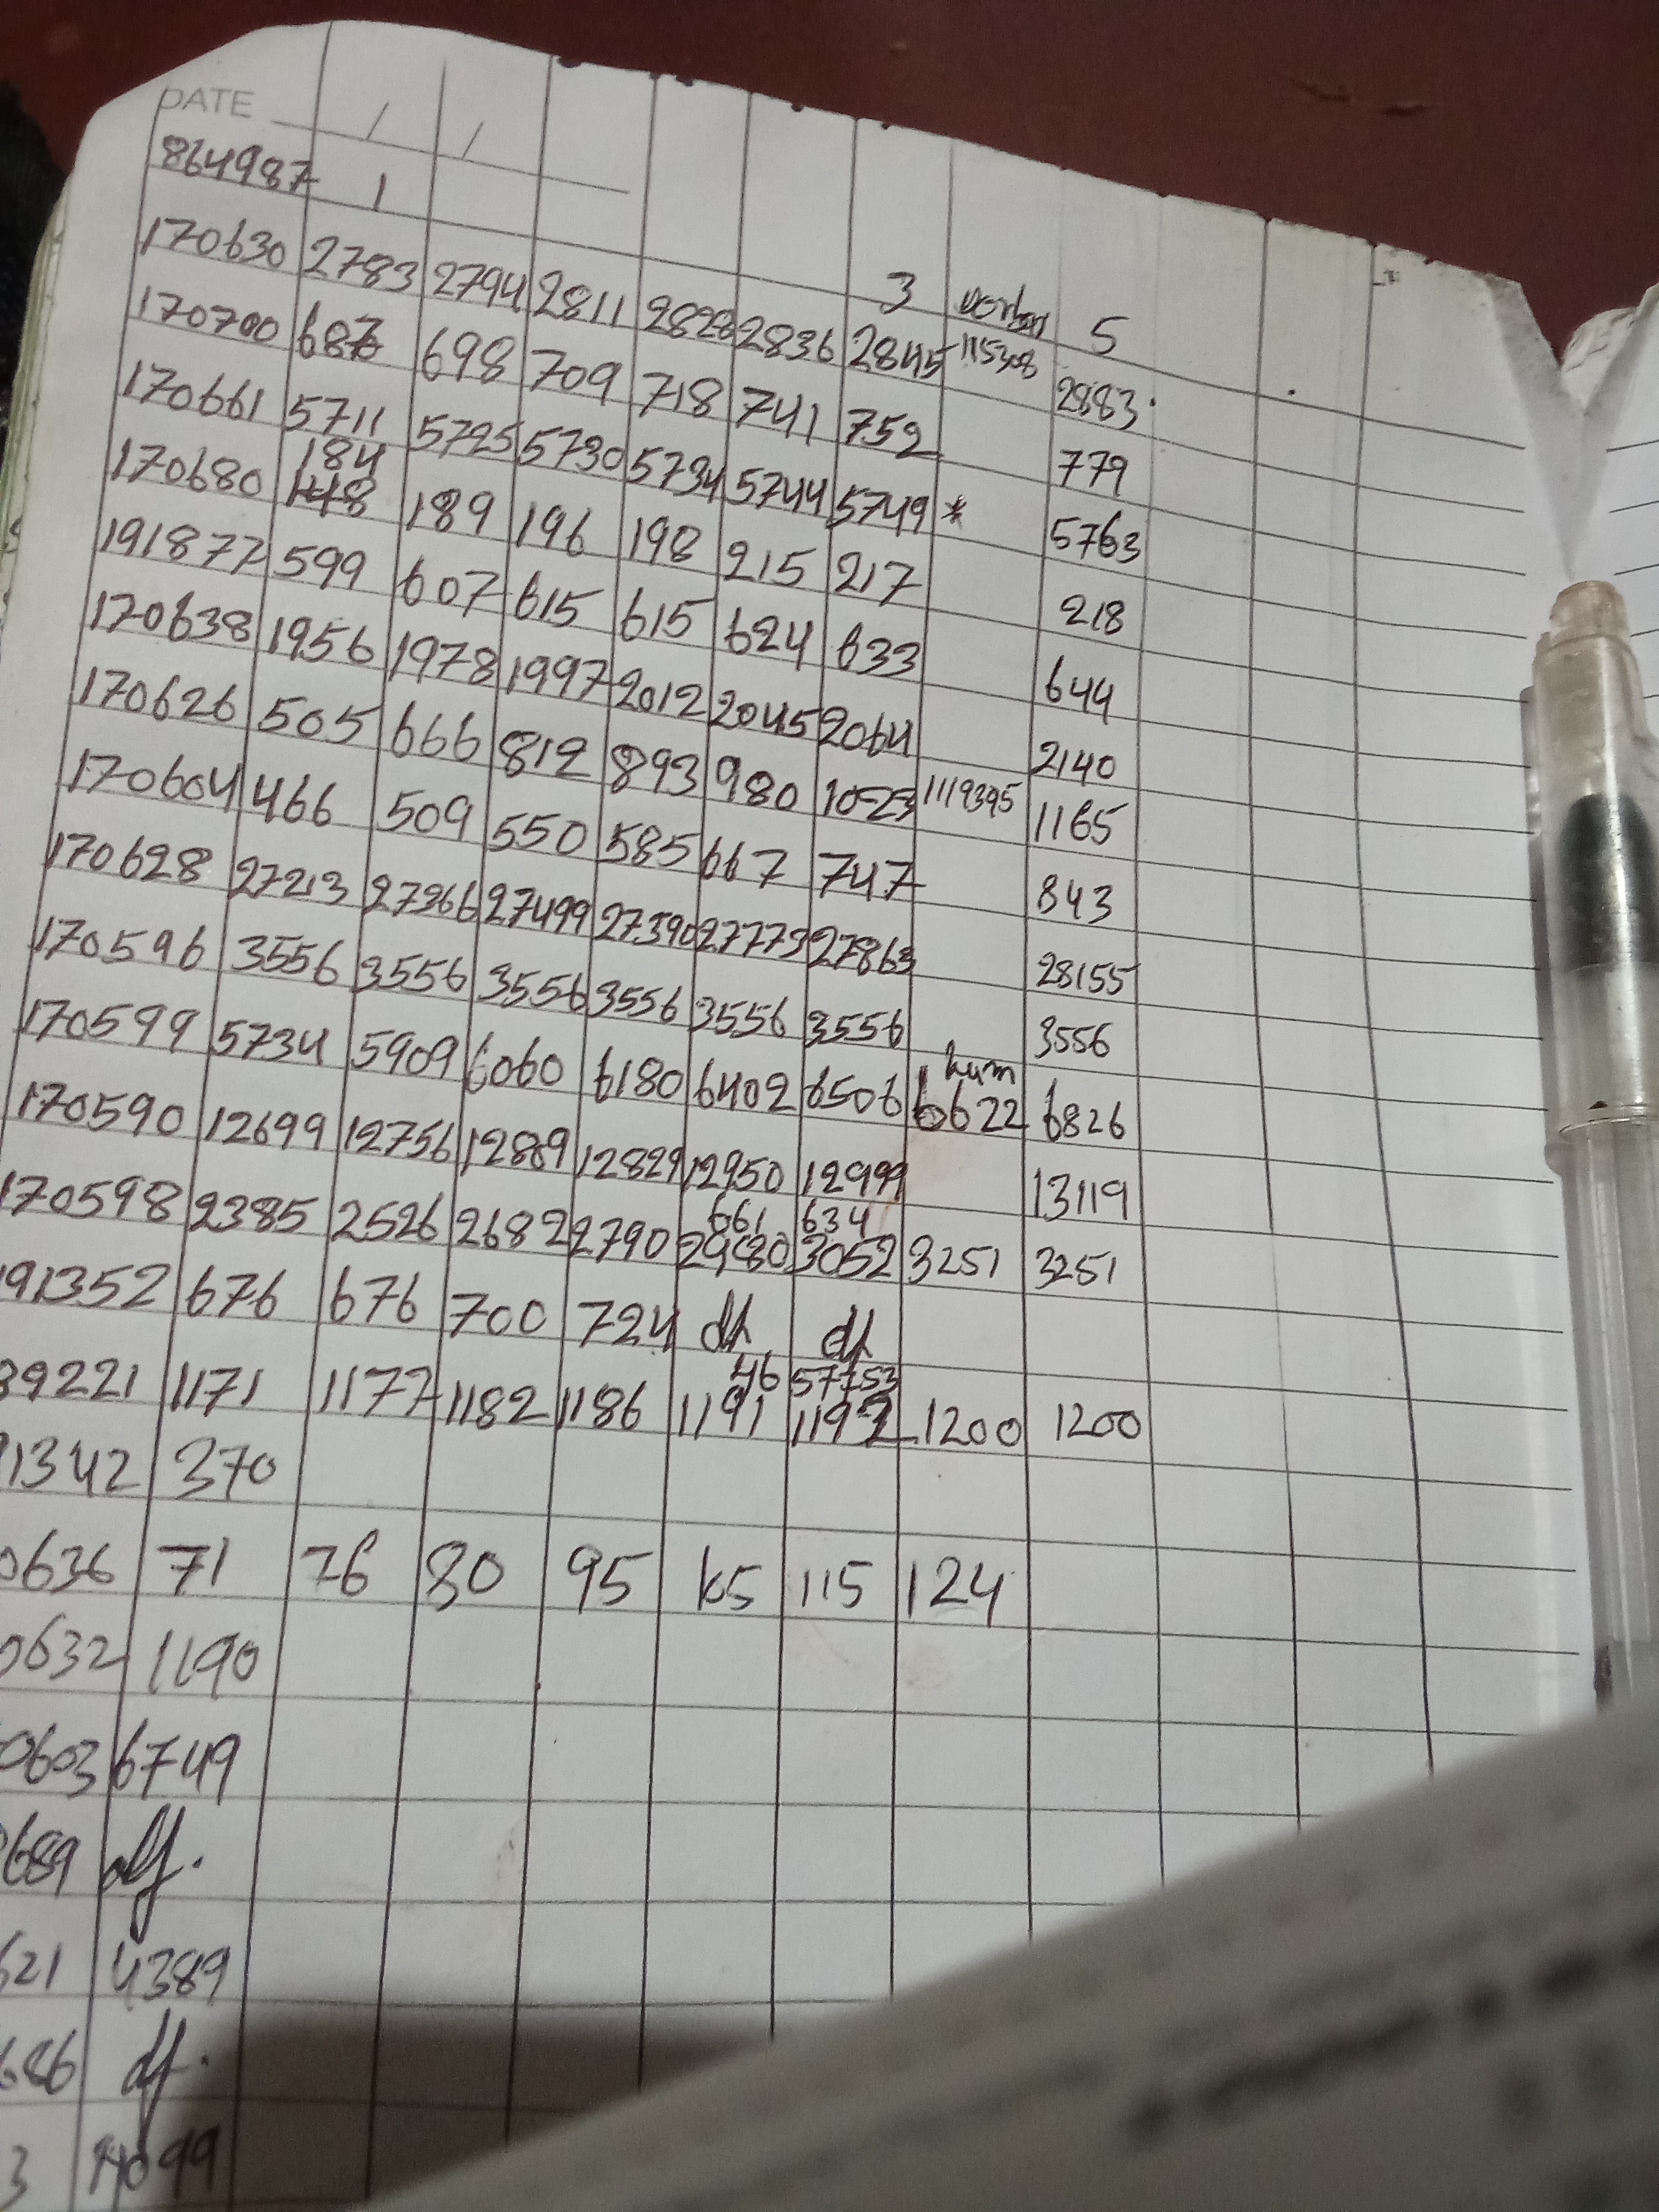 DATE / /
864987 1
3 5
170630 2783 2794 2811 2828 2836 2845 115308 2883.
170700 687 698 709 718 741 752 779
170661 5711 5725 5730 5734 5744 5749 * 5763
184
170680 148 189 196 198 215 217 218
191877 599 607 615 615 624 633 644
170638 1956 1978 1997 2012 2045 2064 2140
170626 505 666 812 893 980 1023 1119395 1165
170604 466 509 550 585 667 747 843
170628 27213 27366 27499 27590 27773 27863 28155
170596 3556 3556 3556 3556 3556 3556 3556
hum
170599 5734 5909 6060 6180 6402 6506 6622 6826
170590 12699 12756 12889 12829 12950 12999 13119
661 634
170598 2385 2526 2682 2790 2980 3052 3251 3251
91352 676 676 700 724 df df
46 57753
89221 1171 1177 1182 1186 1191 1192 1200 1200
1342 370
0636 71 76 80 95 105 115 124
0632 1190
0603 6749
689 df.
621 4389
686 df.
3 14099